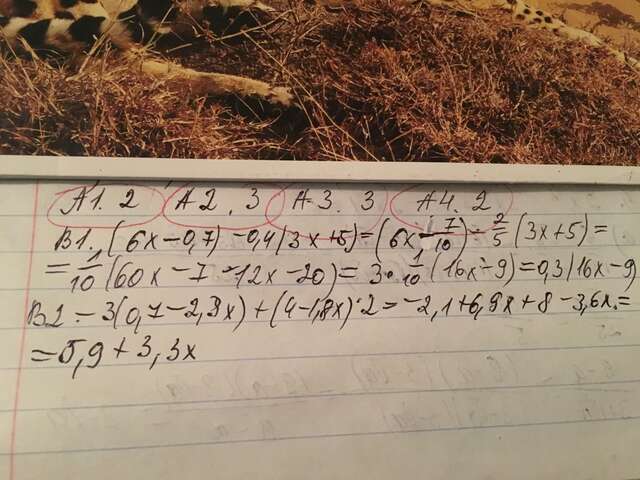 A1. 2 A2. 3 A3. 3 A4. 2
B1. (6x-0,7) - 0,4(3x+5) = (6x - 7/10) - 2/5 (3x+5) =
= 1/10 (60x - 7 - 12x - 20) = 3 · 1/10 (16x - 9) = 0,3(16x-9)
B1. - 3(0,7 - 2,3x) + (4 - 1,8x) · 2 = -2,1 + 6,9x + 8 - 3,6x =
= 5,9 + 3,3x